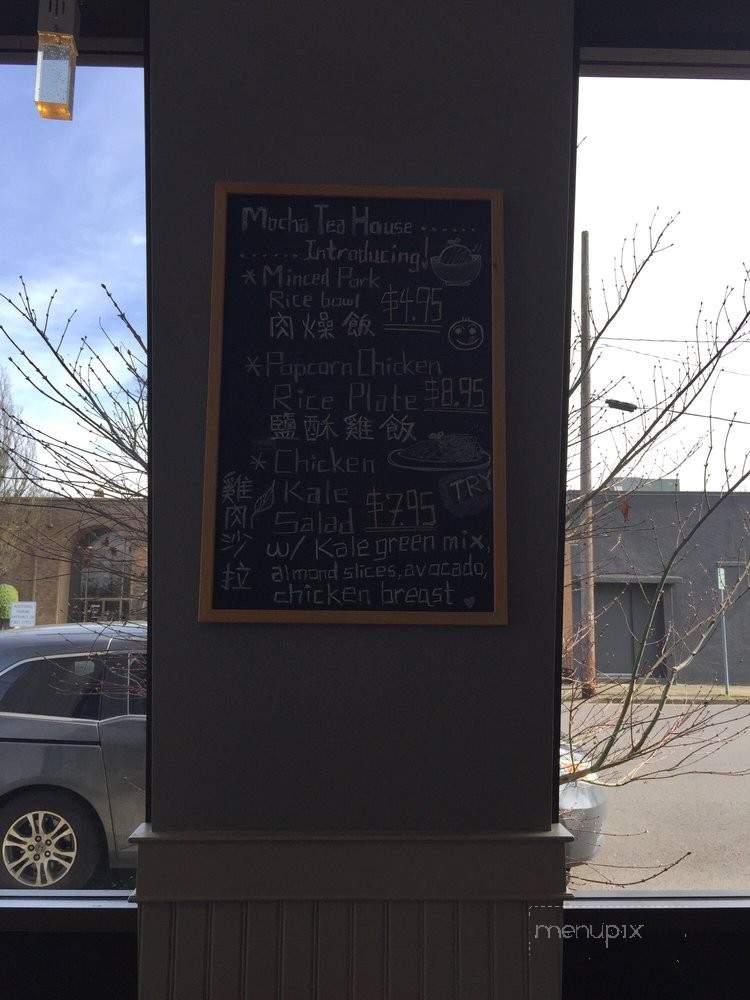 Mocha Tea House ......
...... Introducing!
* Minced Pork
Rice bowl $4.95
肉燥飯
* Popcorn Chicken
Rice Plate $8.95
鹽酥雞飯
* Chicken
Kale
Salad $7.95
TRY
雞肉沙拉
w/ Kale green mix,
almond slices, avocado,
chicken breast
menupix